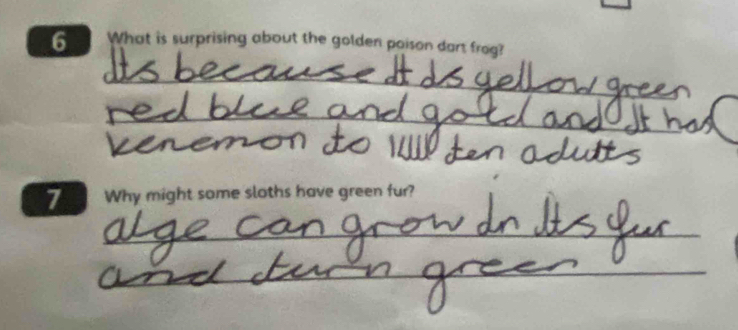 6 What is surprising about the golden poison dart frog?
Its because It is yellow green
red blue and gold and It has
venemon to kill ten adults
7 Why might some sloths have green fur?
alge can grow in Its fur
and turn green